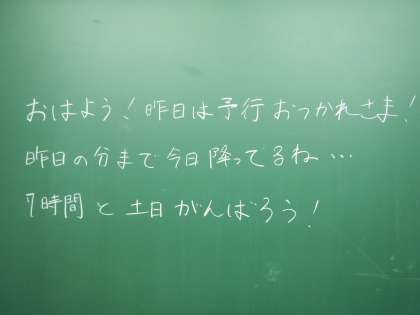 おはよう！昨日は予行おつかれさま！
昨日の分まで今日降ってるね…
7時間と土日がんばろう！